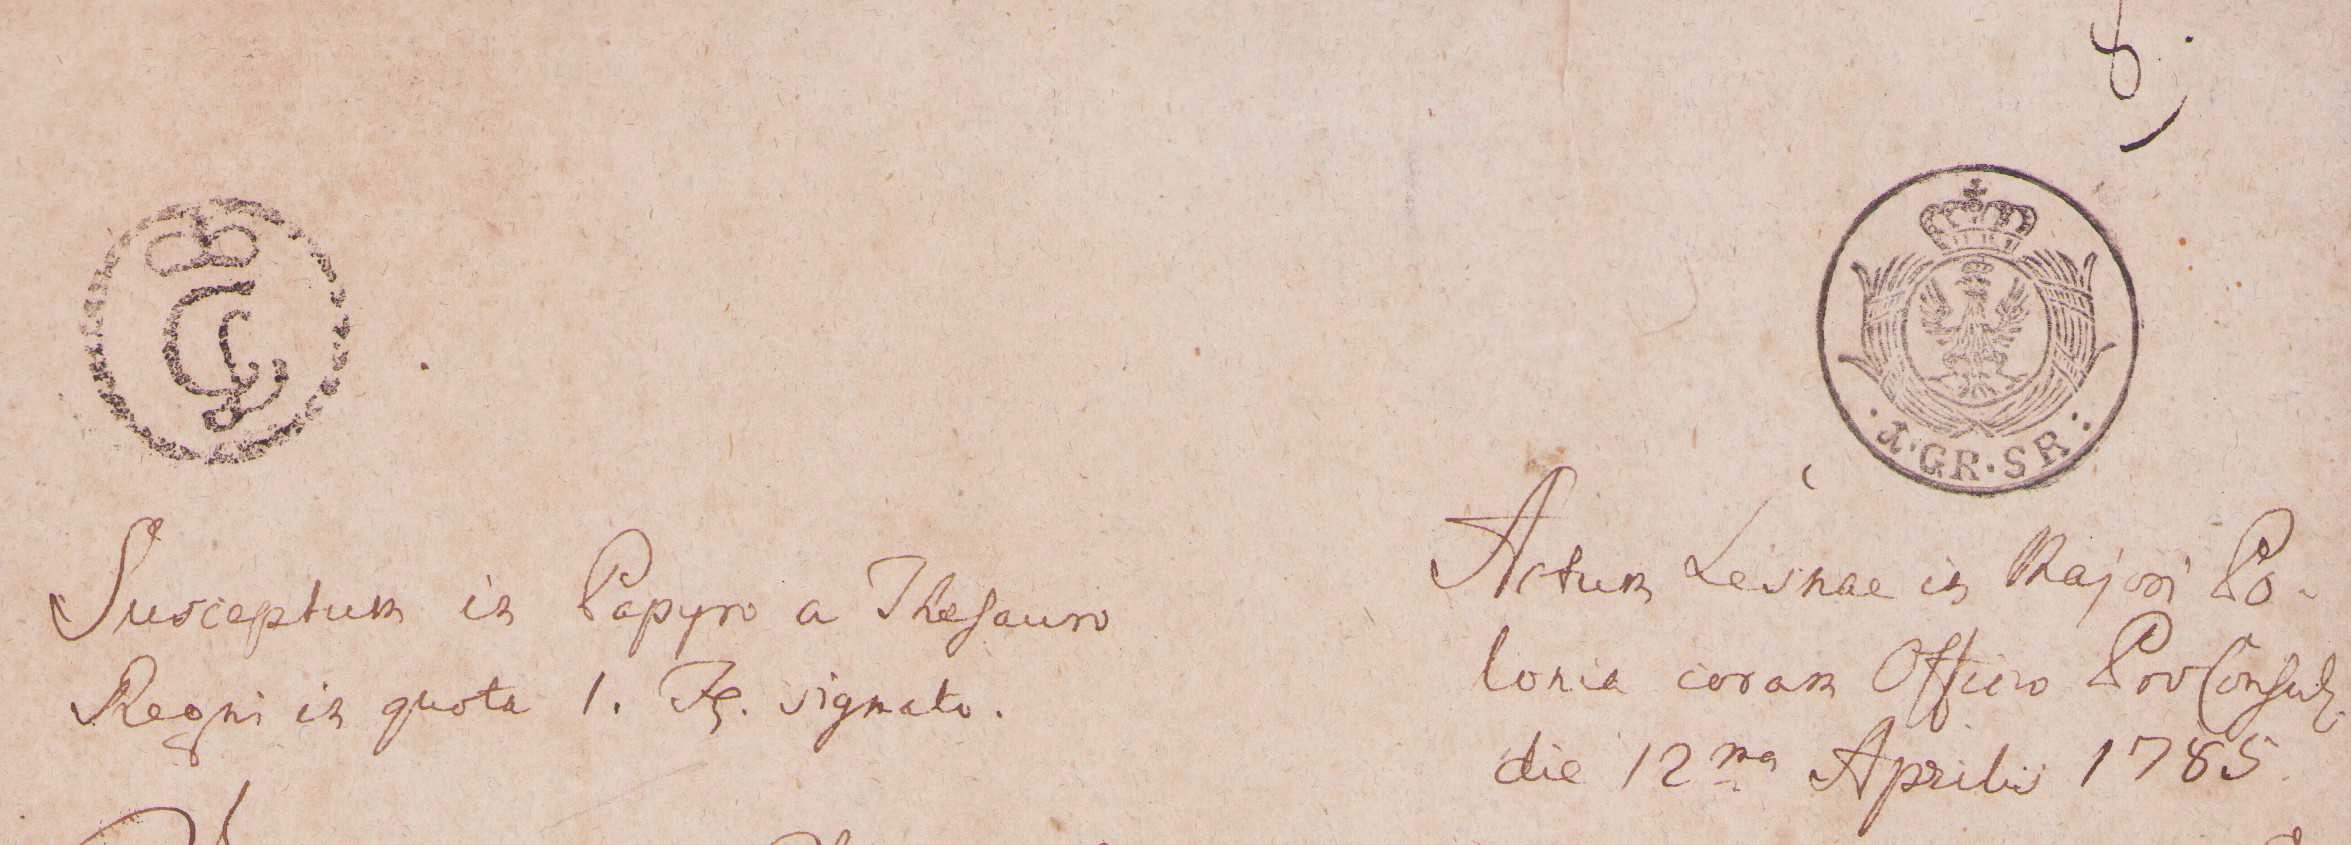 8.
1·GR·SR
Susceptum in Papyro a Thesauro
Regni in quota 1. signato.
Actum Lesnae in Majori Po-
lonia coram Officio ProConsul.
die 12ma Aprilis 1785